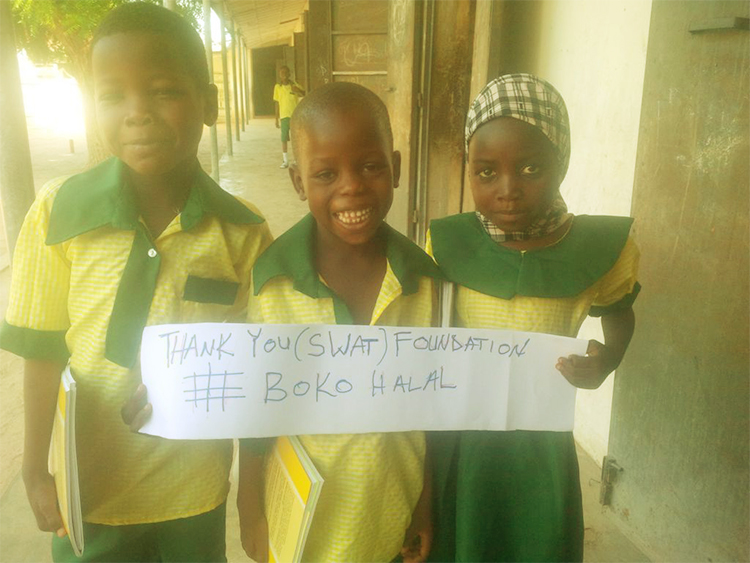 THANK YOU (SWAT) FOUNDATION
# BOKO HALAL